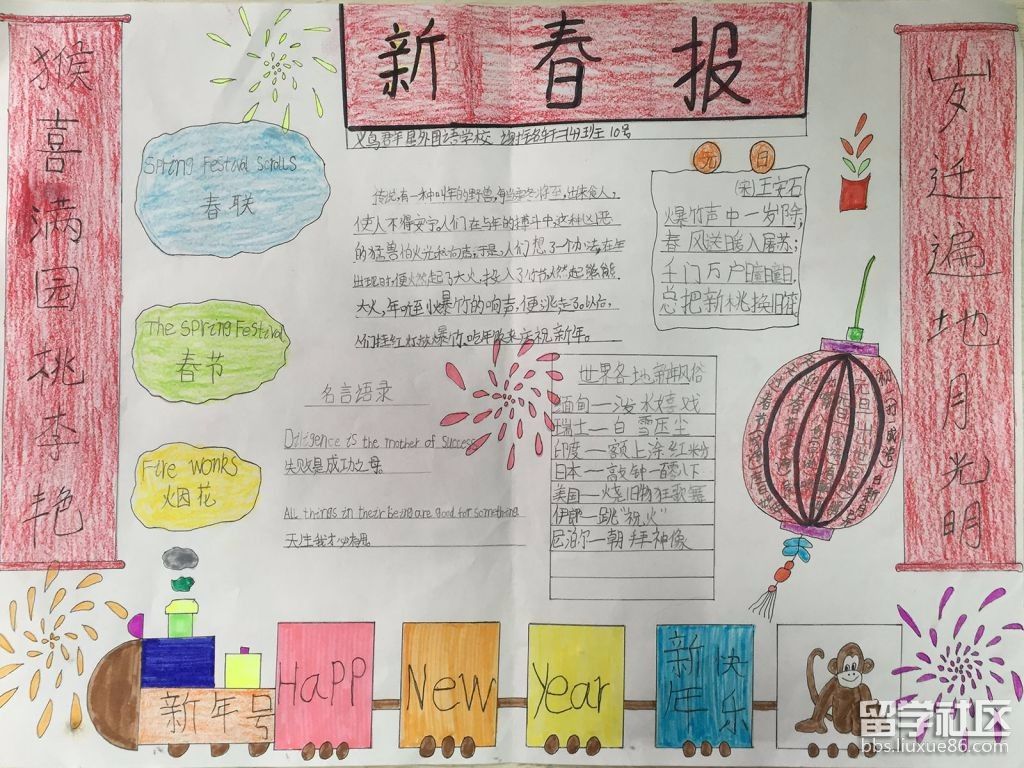 新春报
猴喜满园桃李艳
岁迁遍地月光明
Spring Festival Scrolls
春联
The Spring Festival
春节
Fire Wonks
烟花
传说,有一种叫年的野兽,每当寒冬将至,出来食人,
使人不得安宁,人们在与年的搏斗中,这种凶恶
的猛兽怕火光和响声,于是,人们想了个办法,在年
出现时,便燃起了大火,投入了竹
大火,年听到爆竹的响声,便逃走了。以后,
人们挂红灯放爆竹,吃年饭来庆祝新年。
名言语录
Diligence is the mother of success
失败是成功之母。
All things in their being are good for something
天生我才必有用
元日
(宋)王安石
爆竹声中一岁除,
春风送暖入屠苏;
千门万户曈曈日,
总把新桃换旧符
世界各地新年风俗
缅甸—泼水嬉戏
瑞士—白雪压尘
印度—额上涂红粉
日本—敲钟一百零八下
美国—烧旧物狂歌舞
伊朗—跳“祝火”
尼泊尔—朝拜神像
新年号
HaPP
New
Year
新年快乐
留学社区
bbs.liuxue86.com